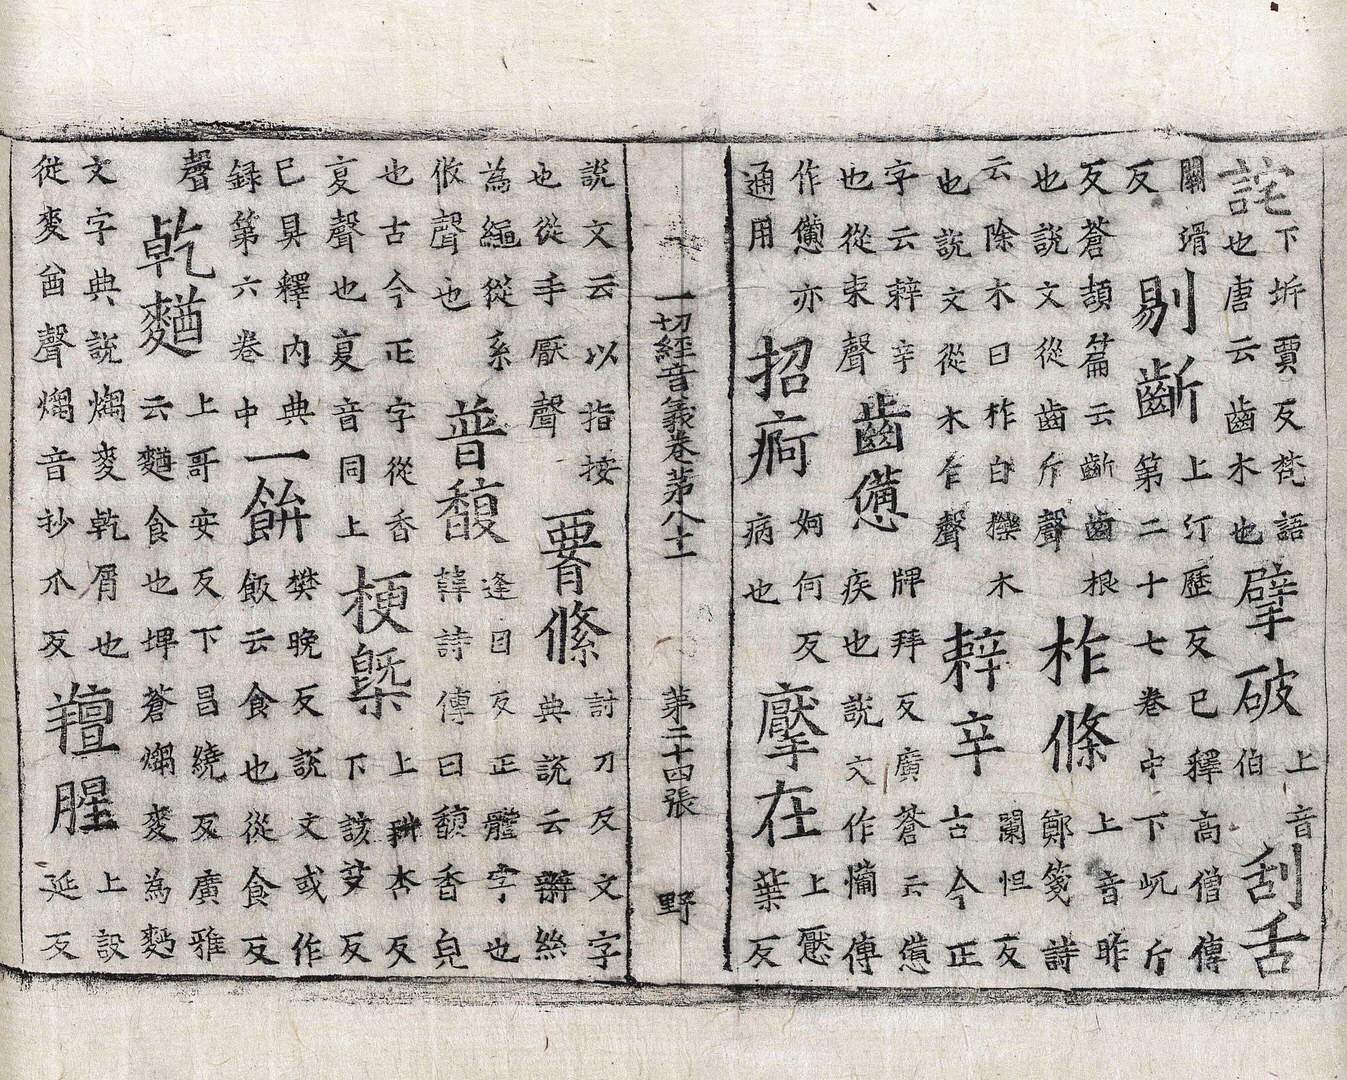 詫
下坼賈反梵語
也唐云齒木也
擘破
上音
伯
刮舌
關滑
反
剔齗
上汀歷反已釋高僧傳
第二十七卷中下圻斤
反蒼頡篇云齗齒根
也說文從齒斤聲
柞條
上音昨
鄭箋詩
云除木曰柞白木
也說文從木乍聲
辢辛
闌怛反
古今正
字云辢辛
也從束聲
齒憊
牌拜反廣蒼云憊
疾也說文作傳
作憊亦
通用
招痾
妸何反
病也
擪在
上懕
葉反
一切經音義卷苐八十一 第二十四張 野
說文云以指按
也從手厭聲
絛
討刀反文字
典說云辮絲
為繩從系
攸聲也
普馥
逢目反正體字也
韓詩傳曰馥香皃
也古今正字從香
复聲也复音同上
梗槩
上耕杏反
下該反
已具釋內典
録第六卷中
一餅
樊晚反說文或作
飯云食也從食反
聲
乾䴬
上哥安反下昌繞反廣雅
云䴬食也埤蒼爛麥為麨
文字典說爛麥乾屑也
從麥酋聲爛音抄爪反
羶腥
上設
延反